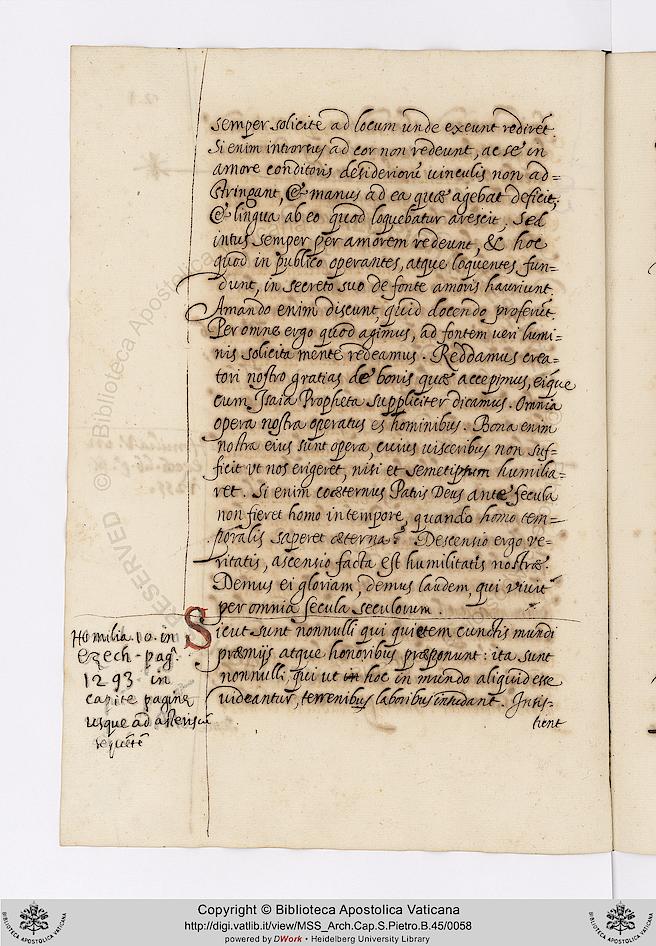 semper solicite ad locum unde exeunt redirēt.
Si enim introrsus ad cor non redeunt, ac se in
amore conditoris desideriorū vinculis non ad=
stringant, & manus ad ea quæ agebat deficit,
& lingua ab eo quod loquebatur arescit. Sed
intus semper per amorem redeunt, & hoc
quod in publico operantes, atque loquentes fun-
dunt, in secreto suo de fonte amoris hauriunt.
Amando enim discunt, quid docendo proferūt.
Per omne ergo quod agimus, ad fontem veri lumi=
nis solicita mente redeamus. Reddamus crea=
tori nostro gratias de bonis quæ accepimus, eique
cum Isaia Propheta suppliciter dicamus. Omnia
opera nostra operatus es hominibus. Bona enim
nostra eius sunt opera, cuius visceribus non suf=
ficit vt nos erigeret, nisi et semetipsum humilia=
ret. Si enim coæternus Patris Deus ante secula
non fieret homo in tempore, quando homo tem=
poralis saperet æterna? Descensio ergo ve=
ritatis, ascensio facta est humilitatis nostræ.
Demus ei gloriam, demus laudem, qui vivit
per omnia secula seculorum.
Sicut sunt nonnulli qui quietem cunctis mundi
præmijs atque honoribus præponunt: ita sunt
nonnulli, qui ut in hoc in mundo aliquid esse
videantur, terrenibus laboribus insudant. Insis-
tient
Homilia 10. in
Ezech - pag.
1293. in
capite paginæ
usque ad
sequētē
© Biblioteca Apostolica Vaticana
RESERVED
Copyright © Biblioteca Apostolica Vaticana
http://digi.vatlib.it/view/MSS_Arch.Cap.S.Pietro.B.45/0058
powered by DWork • Heidelberg University Library
BIBLIOTECA APOSTOLICA VATICANA
BIBLIOTECA APOSTOLICA VATICANA